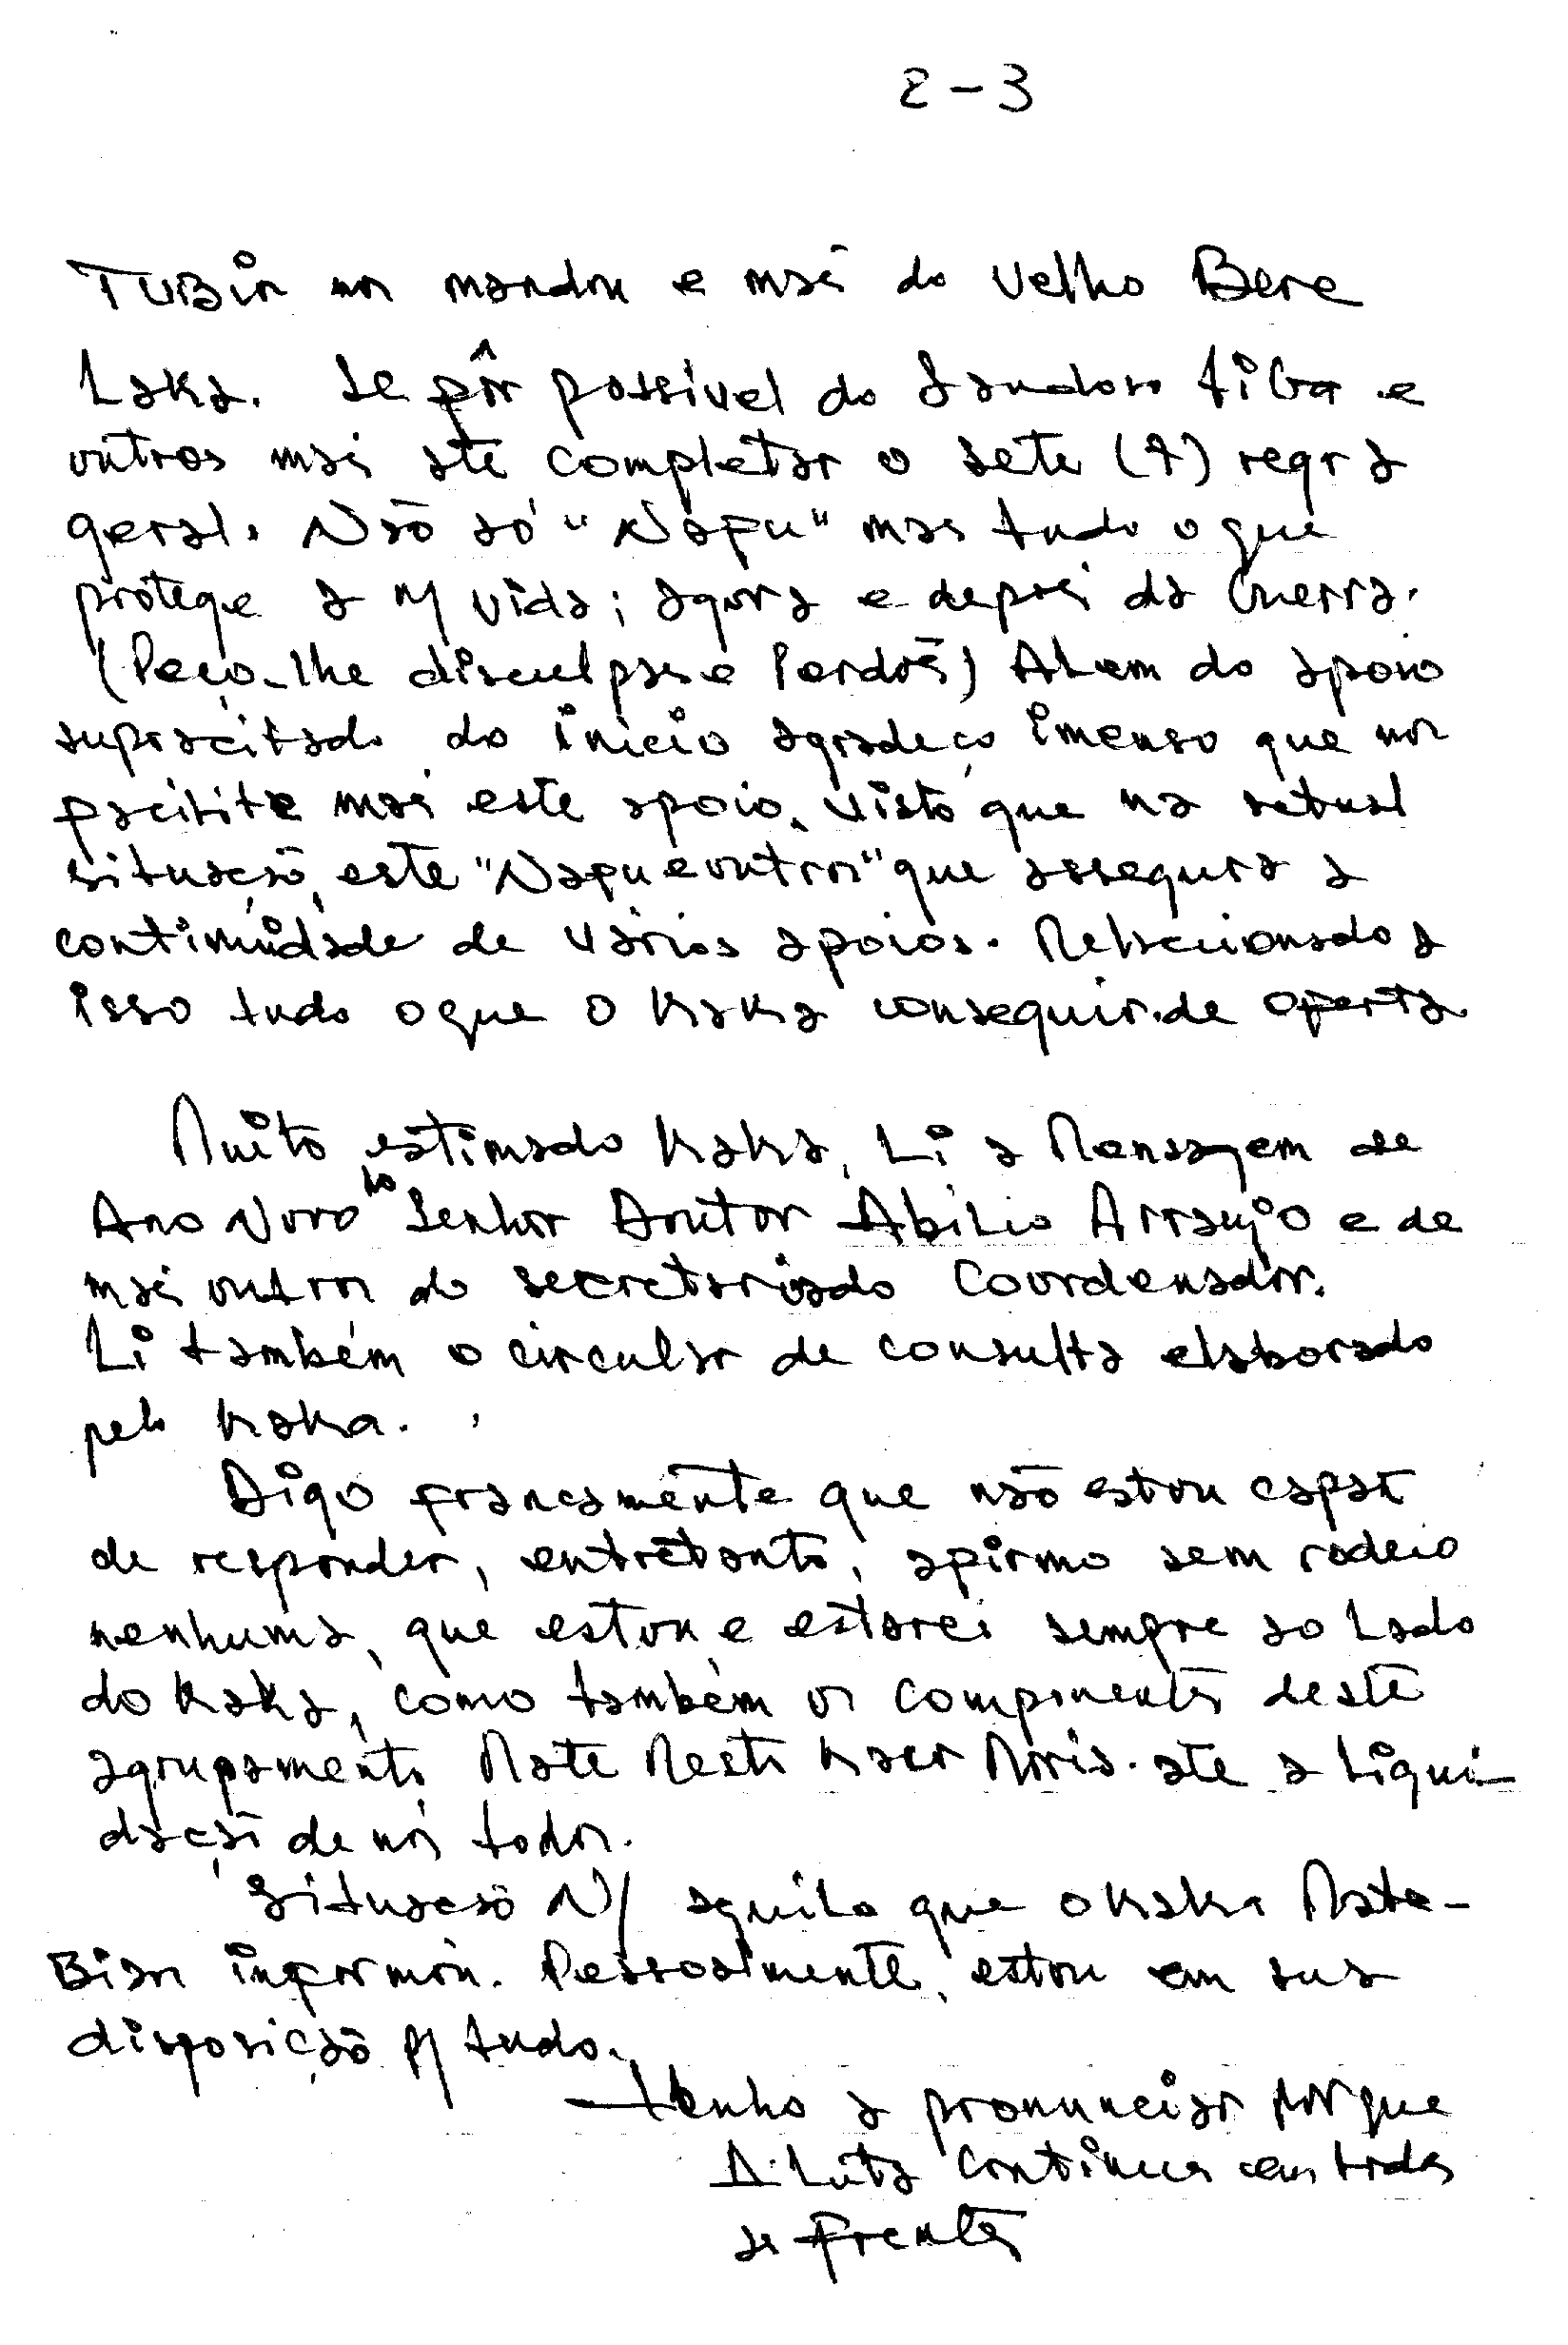 2-3
TUBIR nos mandou e mais do Velho Bere
Laka. Se fôr possível do Saudoso e
outros mais até completar o sete (7) regra
geral. Não só "Napu" mas tudo o que
protege a N/ vida; agora e depois da Guerra.
(Peço-lhe disculpas e Perdõs) Alem do apoio
supracitado do início agradeço imenso que nos
facilite mais este apoio, visto que na actual
situação, este "Napu e outros" que assegura a
continuidade de vários apoios. Relacionado a
isso tudo o que o Kaka conseguir.de oferta
Muito estimado Kaka, Li a Mensagem de
Ano Novo do Senhor Doutor Abílio Arraújo e de
mais outros do secretariado Coordenador.
Li também o circular de consulta elaborado
pelo Kaka.
Digo francamente que não estou capaz
de responder, entretanto, afirmo sem rodeio
nenhuma, que estou e estarei sempre ao Lado
do Kaka, como também os componentes deste
agrupamento, Mate Mesti Kaer Moris. até a Liqui-
dação de nós todos.
Situação N/ aquilo que o Kaka Mate-
Bian informou. Pessoalmente, estou em sua
disposição p/ tudo.
Tenho a pronunciar porque
A Luta Continua em todas
as frentes